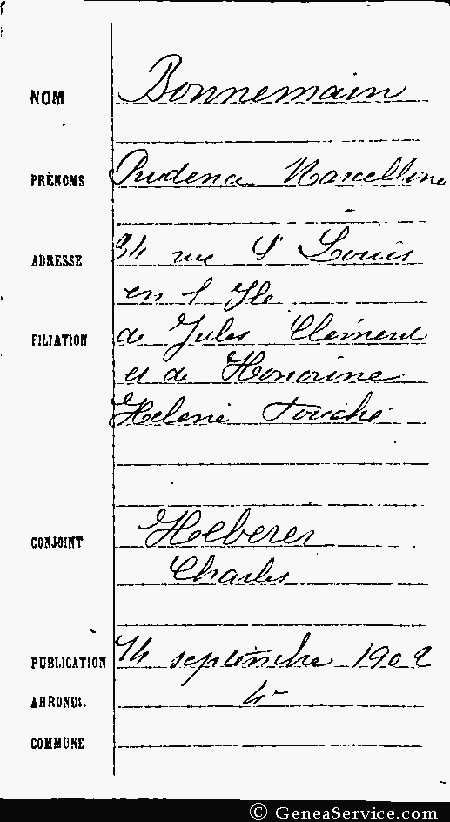 NOM Bonnemain
PRÉNOMS Prudence Marcelline
ADRESSE 34 rue St Louis
en l'Ile
FILIATION de Jules Clément
et de Honorine
Helene Touché
CONJOINT Heberer
Charles
PUBLICATION 14 septembre 1902
ARRONDt. 4e
COMMUNE
© GeneaService.com